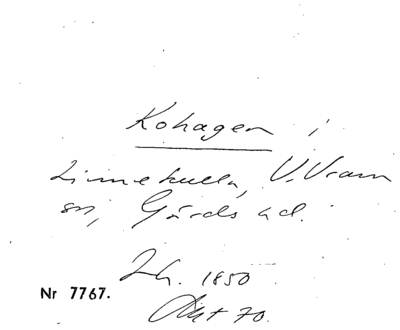 Kohagen i
Linnekulla, V. Vram
sn, Gärds hd.
1850
Nr 7767.
70.